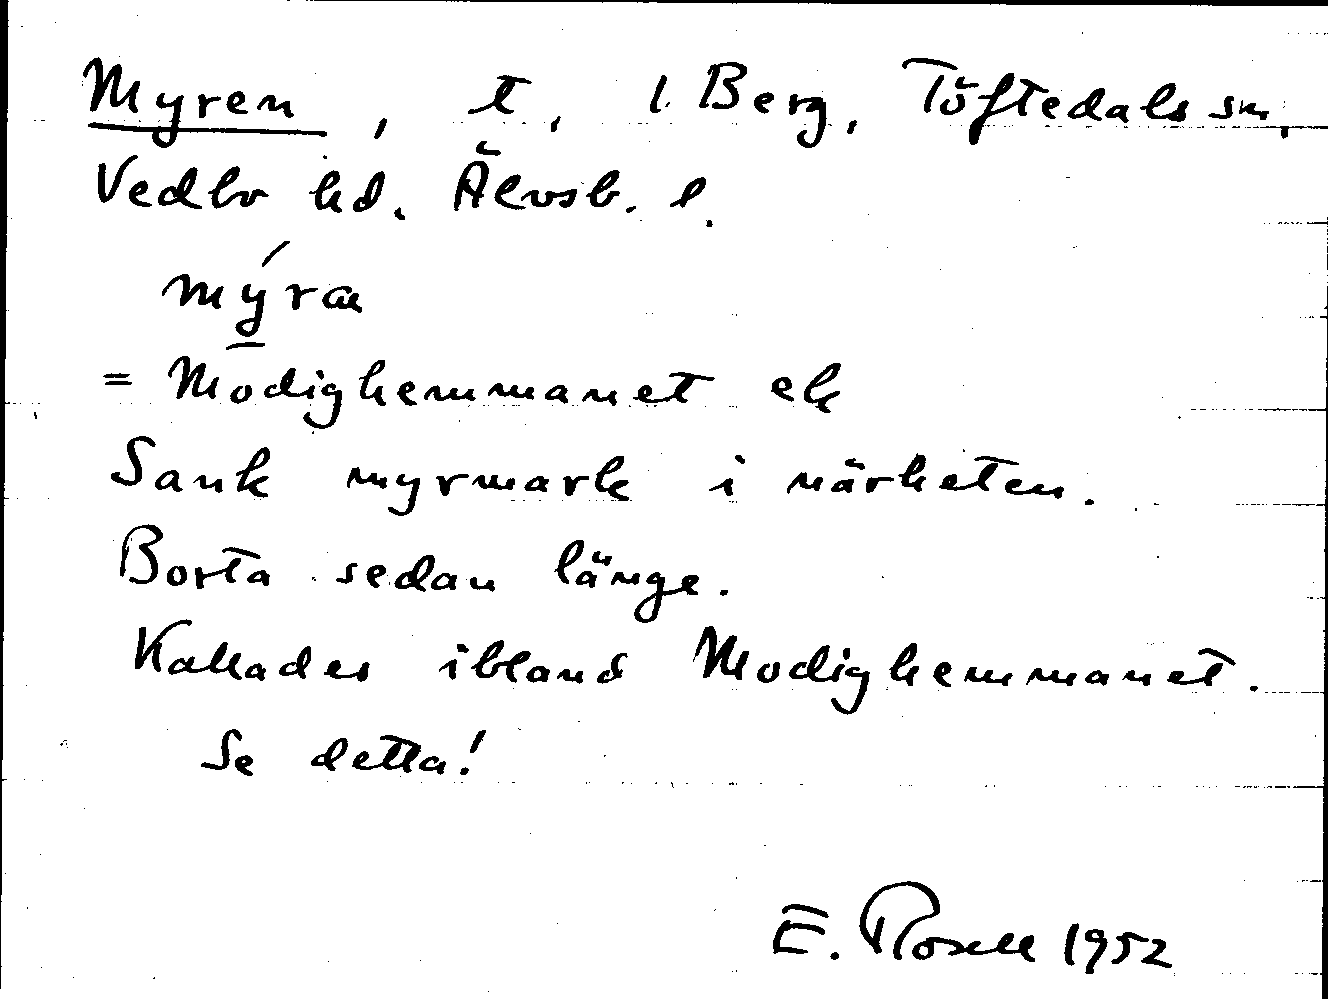 Myren, t, 1. Berg, Töftedals sn,
Vedbo hd. Älvsb. l.
mýra
= Modighemmanet
Sank myrmark i närheten.
Borta sedan länge.
Kallades ibland Modighemmanet.
Se detta!
E. Rosell 1952